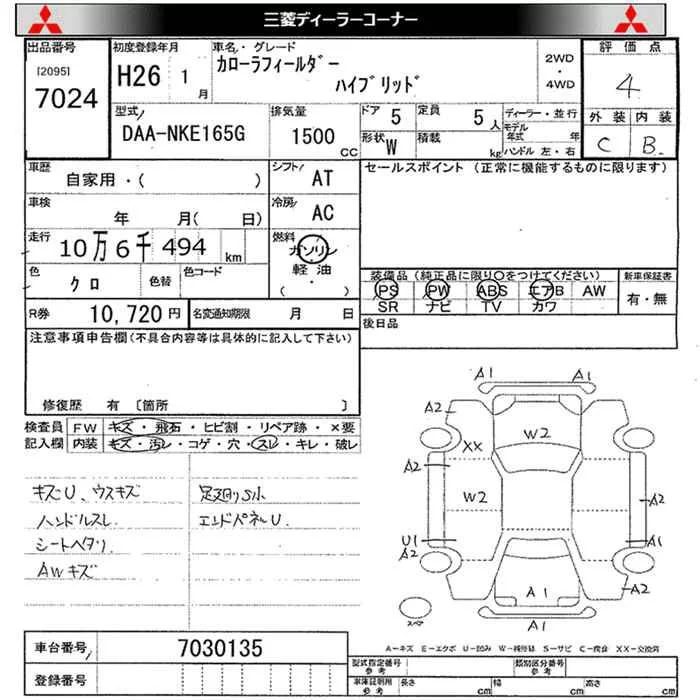 三菱ディーラーコーナー
出品番号 初度登録年月 車名・グレード 2WD・4WD 評価点
[2095]
7024 H26 1月 カローラフィールダー ハイブリッド 4
型式 排気量 ドア 5 定員 5人 ディーラー・並行 外装 内装
DAA-NKE165G 1500 CC 形状 W 積載 kg モデル年式 年 ハンドル 左・右 C B
車歴 シフト セールスポイント (正常に機能するものに限ります)
自家用・( ) AT
車検 冷房
年 月( 日) AC
走行 燃料
10万6千494 km ガソリン
軽油
(・)
色 色替 色コード
クロ
装備品 (純正品に限り〇をつけてください) 新車保証書
PS PW ABS エアB AW 有・無
SR ナビ TV カワ
R券 10,720円 名変通知期限 月 日 後日品
注意事項申告欄(不具合内容等は具体的に記入して下さい)
修復歴 有 〔箇所 〕
検査員 FW キズ・飛石・ヒビ割・リペア跡・×要
記入欄 内装 キズ・汚レ・コゲ・穴・スレ・キレ・破レ
キズU、ウスキズ 足廻りS小
ハンドルスレ エンドパネルU
シートヘタリ
AWキズ
A1 A1
A2 A2
XX W2
A2 W2 A2
U1 A1
A2 A2
A1
A1
スペア
A-キズ E-エクボ U-凹み W-補修跡 S-サビ C-腐食 XX-交換済
車台番号 7030135
登録番号
型式指定番号 参考 類別区分番号 参考
車庫証明用 参考 長さ cm 幅 cm 高さ cm